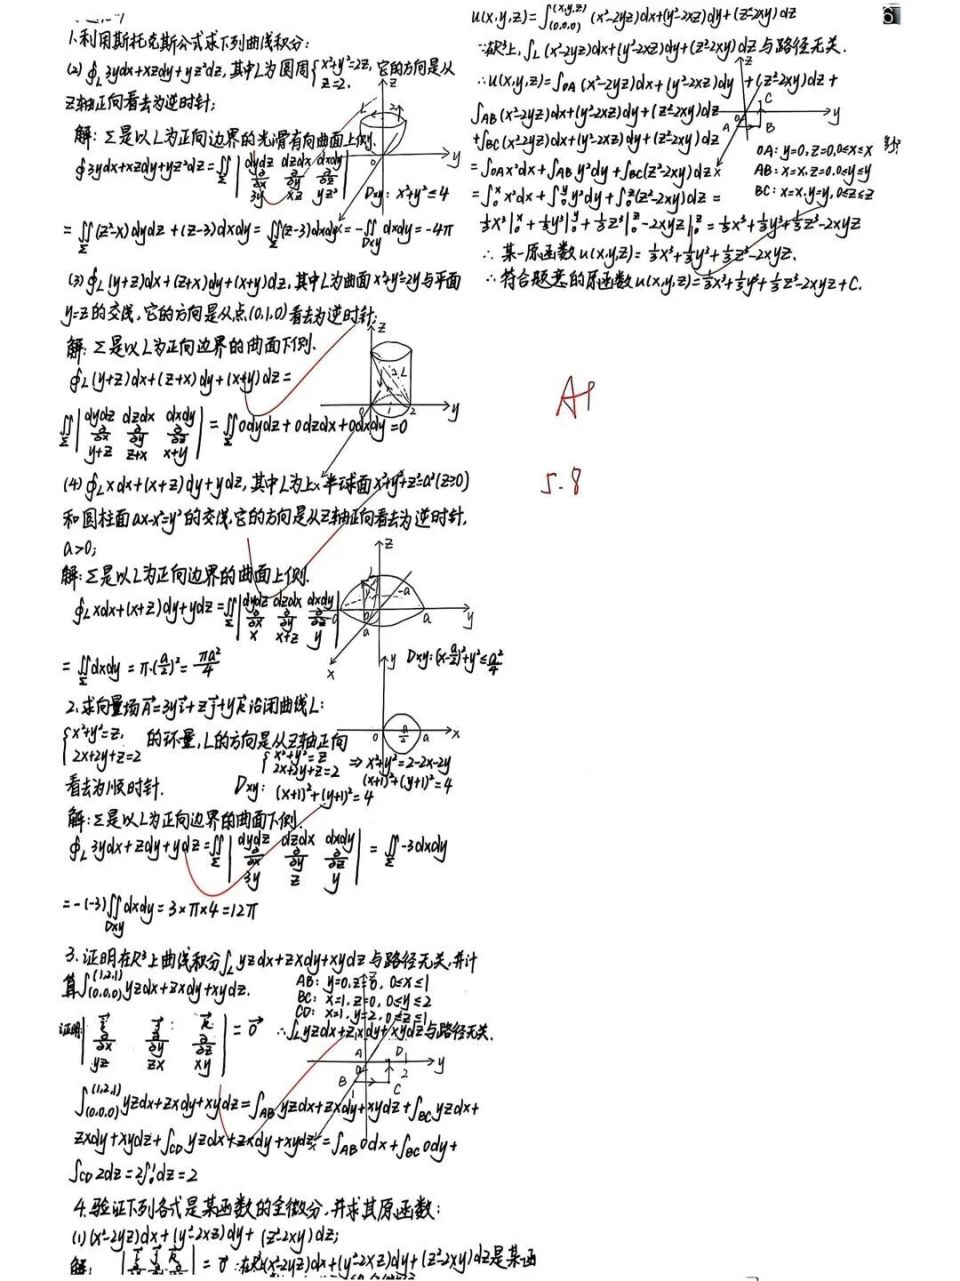 1.利用斯托克斯公式求下列曲线积分:
(2) ∮L 3ydx+xzdy+yz²dz, 其中L为圆周{x²+y²=2z, z=2. 它的方向是从
z轴正向看去为逆时针;
解: Σ是以L为正向边界的光滑有向曲面上侧.
∮3ydx+xzdy+yz²dz=∬Σ |dydz dzdx dxdy ∂/∂x ∂/∂y ∂/∂z 3y xz yz²| Dxy: x²+y²≤4
=∬Σ (z²-x)dydz+(z-3)dxdy=∬Σ(z-3)dxdy=-∬Dxy dxdy=-4π
(3) ∮L (y+z)dx+(z+x)dy+(x+y)dz, 其中L为曲面x²+y²=2y与平面
y=z的交线, 它的方向是从点(0,1,0)看去为逆时针;
解: Σ是以L为正向边界的曲面下侧.
∮L (y+z)dx+(z+x)dy+(x+y)dz=
∬Σ |dydz dzdx dxdy ∂/∂x ∂/∂y ∂/∂z y+z z+x x+y| = ∬Σ 0dydz+0dzdx+0dxdy=0
(4) ∮L xdx+(x+z)dy+ydz, 其中L为上半球面x²+y²+z²=a²(z≥0)
和圆柱面ax-x²=y²的交线, 它的方向是从z轴正向看去为逆时针,
a>0;
解: Σ是以L为正向边界的曲面上侧.
∮L xdx+(x+z)dy+ydz=∬Σ |dydz dzdx dxdy ∂/∂x ∂/∂y ∂/∂z x x+z y|
=∬Σ dxdy=π·(a/2)²=πa²/4 Dxy: (x-a/2)²+y²≤a²/4
2.求向量场A=3yi+zj+yk沿闭曲线L:
{x²+y²=z, 2x+2y+z=2 的环量, L的方向是从z轴正向
看去为顺时针.
{x²+y²=z 2x+2y+z=2 ⇒ x²+y²=2-2x-2y
(x+1)²+(y+1)²=4
Dxy: (x+1)²+(y+1)²=4
解: Σ是以L为正向边界的曲面下侧.
∮L 3ydx+zdy+ydz=∬Σ |dydz dzdx dxdy ∂/∂x ∂/∂y ∂/∂z 3y z y| = ∬Σ -3dxdy
=-(-3)∬Dxy dxdy=3×π×4=12π
3.证明在R³上曲线积分∫L yzdx+zxdy+xydz与路径无关,并计
算∫(0,0,0)(1,2,1) yzdx+zxdy+xydz.
AB: y=0,z=0, 0≤x≤1
BC: x=1,z=0, 0≤y≤2
CD: x=1,y=2, 0≤z≤1
证明 |i j k ∂/∂x ∂/∂y ∂/∂z yz zx xy| = 0 ∴∫L yzdx+zxdy+xydz与路径无关.
∫(0,0,0)(1,2,1) yzdx+zxdy+xydz=∫AB yzdx+zxdy+xydz+∫BC yzdx+
zxdy+xydz+∫CD yzdx+zxdy+xydz=∫AB 0dx+∫BC 0dy+
∫CD 2dz=2∫₀¹dz=2
4.验证下列各式是某函数的全微分,并求其原函数:
(1) (x²-2yz)dx+(y²-2xz)dy+(z²-2xy)dz;
解: |i j k| = 0 ∴在R³(x²-2yz)dx+(y²-2xz)dy+(z²-2xy)dz是某函
u(x,y,z)=∫(0,0,0)(x,y,z) (x²-2yz)dx+(y²-2xz)dy+(z²-2xy)dz
∵在R³上,∫L (x²-2yz)dx+(y²-2xz)dy+(z²-2xy)dz与路径无关.
∴u(x,y,z)=∫OA (x²-2yz)dx+(y²-2xz)dy+(z²-2xy)dz+
∫AB (x²-2yz)dx+(y²-2xz)dy+(z²-2xy)dz
+∫BC (x²-2yz)dx+(y²-2xz)dy+(z²-2xy)dz
OA: y=0,z=0,0≤x≤x
AB: x=x,z=0,0≤y≤y
BC: x=x,y=y,0≤z≤z
=∫OA x²dx+∫AB y²dy+∫BC(z²-2xy)dz
=∫₀ˣx²dx+∫₀ʸy²dy+∫₀ᶻ(z²-2xy)dz=
⅓x³|₀ˣ+⅓y³|₀ʸ+⅓z³|₀ᶻ-2xyz|₀ᶻ=⅓x³+⅓y³+⅓z³-2xyz
∴某一原函数u(x,y,z)=⅓x³+⅓y³+⅓z³-2xyz.
∴符合题意的原函数u(x,y,z)=⅓x³+⅓y³+⅓z³-2xyz+C.
A+
5-8
6